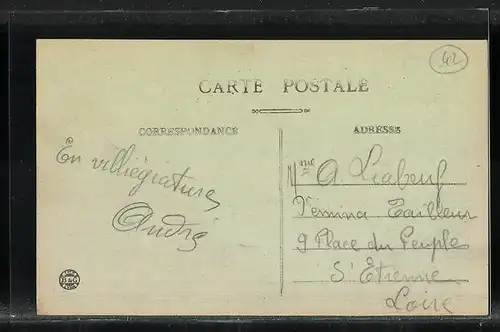 42
CARTE POSTALE
CORRESPONDANCE
ADRESSE
En villégiature
André
A. Liabeuf
Fémina Tailleur
9 Place du Peuple
St Étienne
Loire
B&G